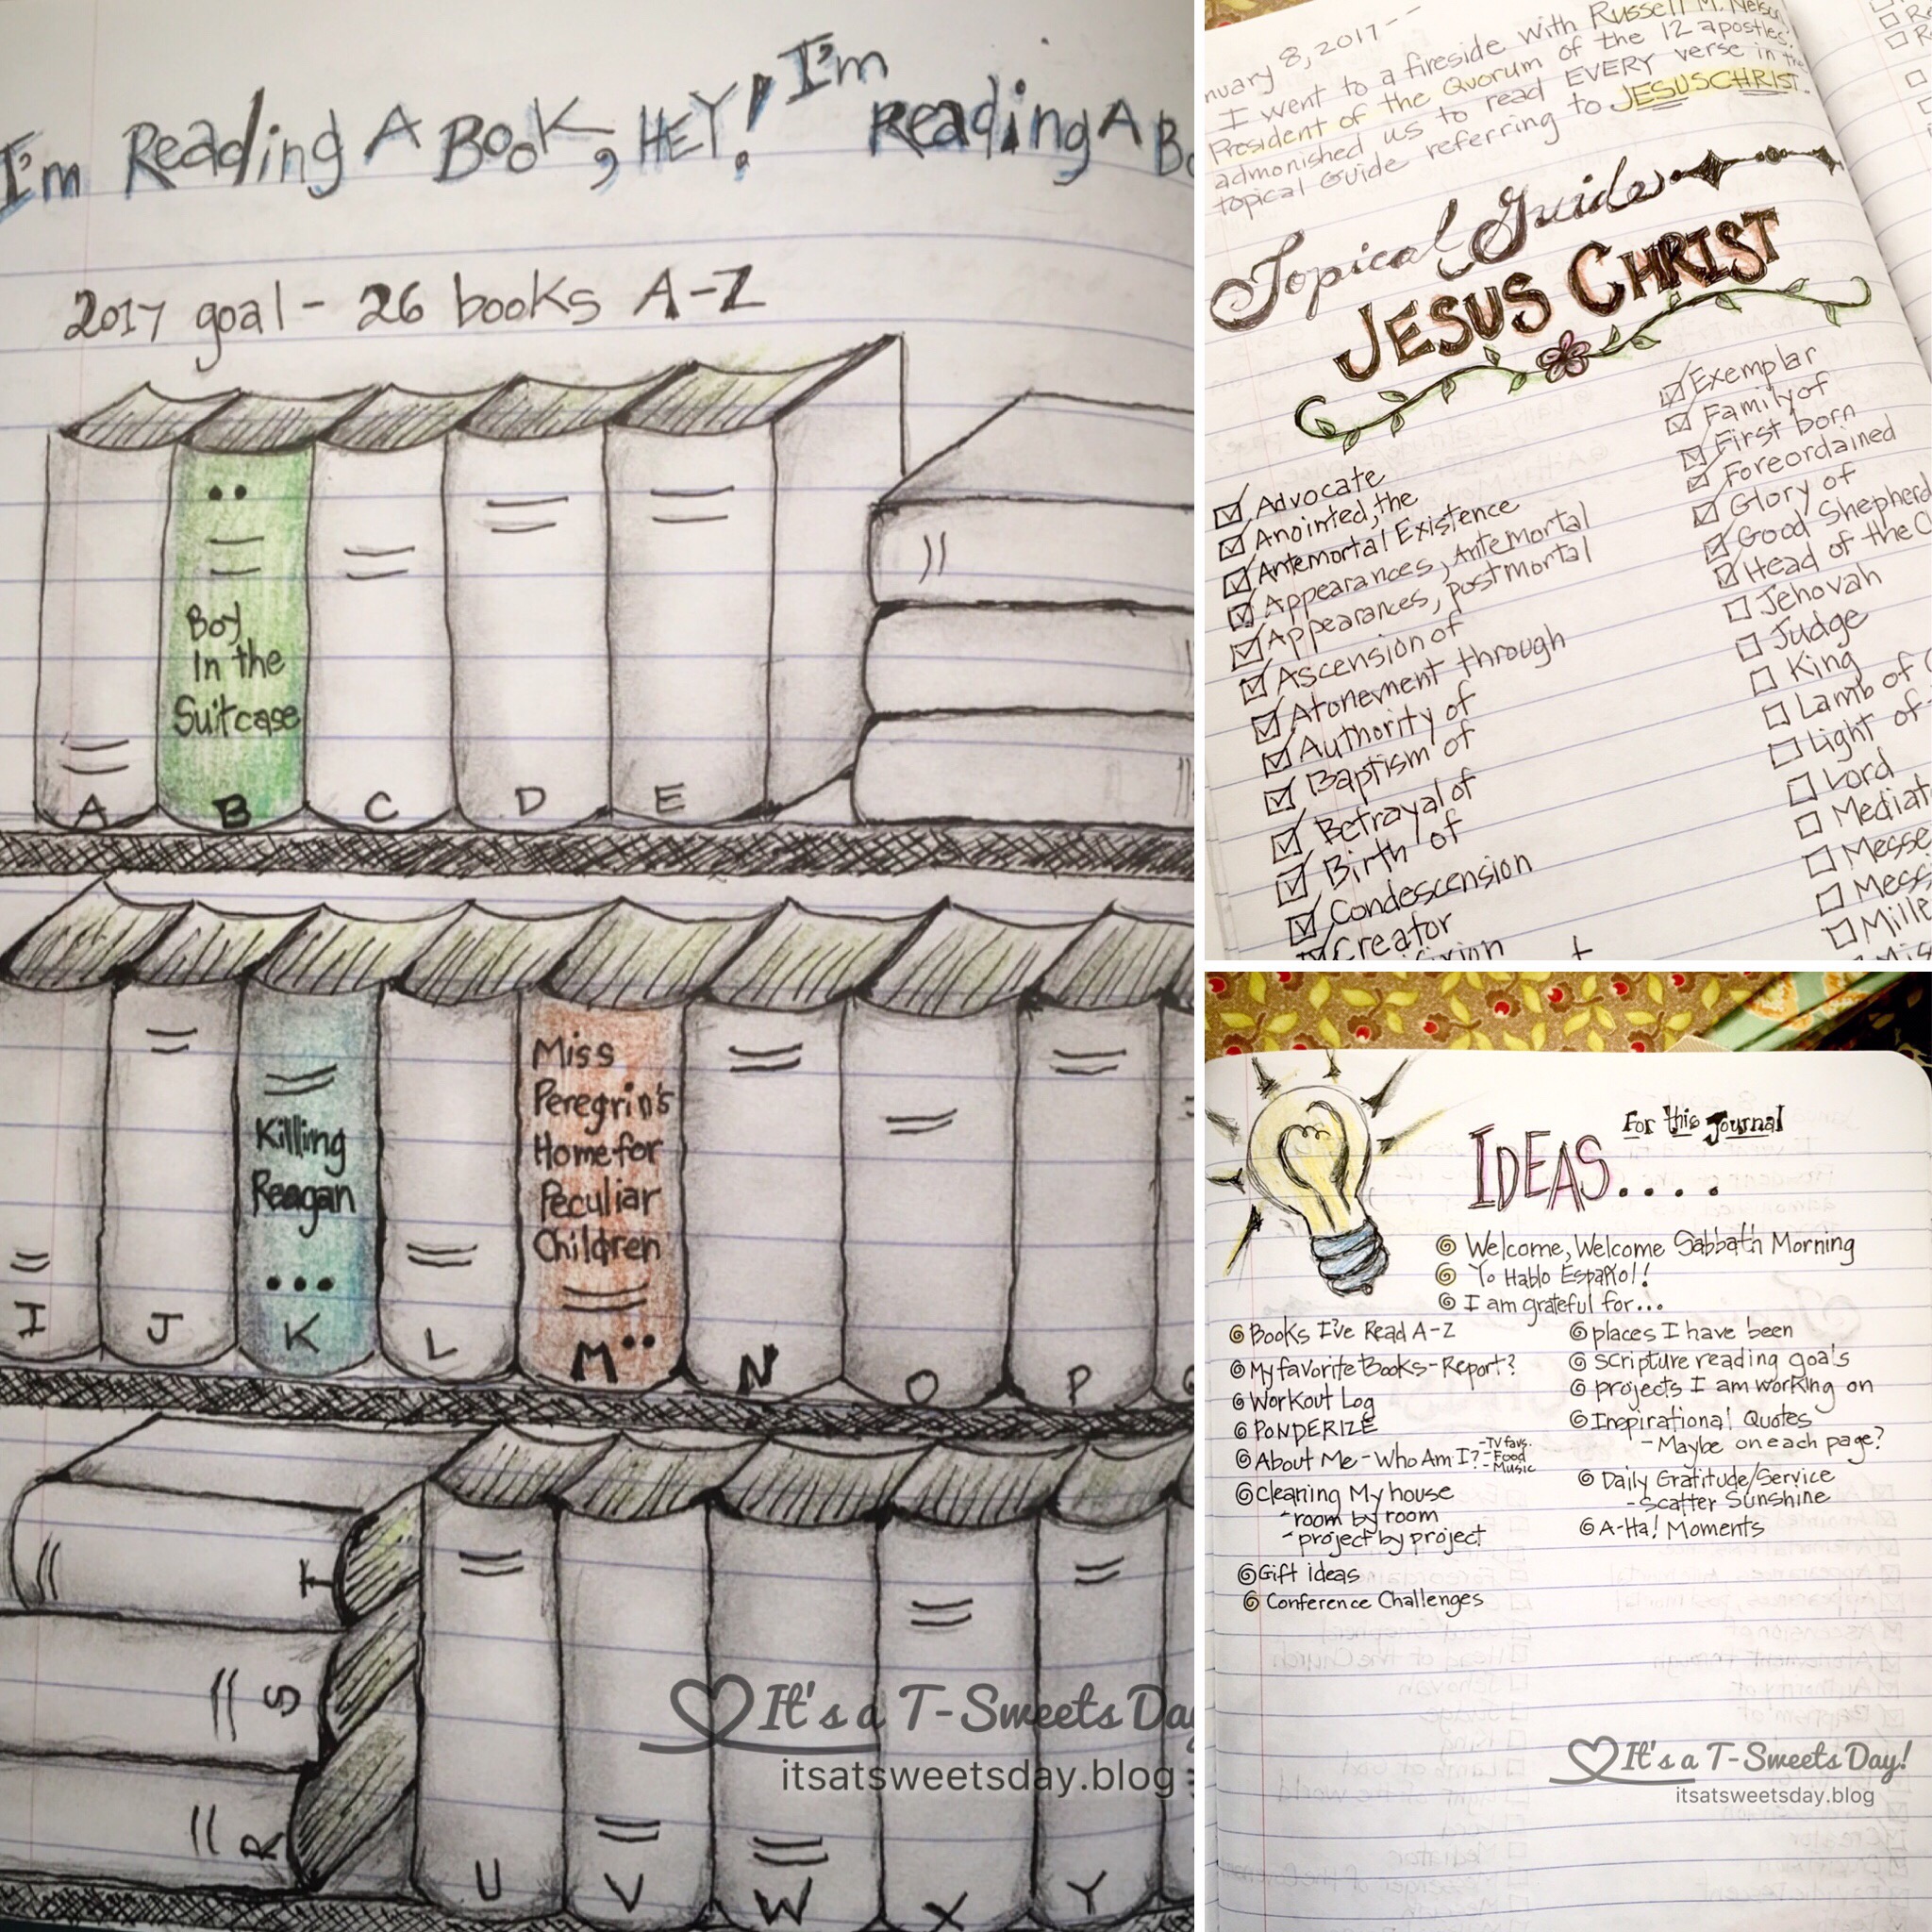 I'm Reading A Book, HEY! I'm Reading A
2017 goal - 26 books A-Z
Boy
In the
Suitcase
A B C D E
Killing
Reagan
Miss
Peregrin's
Home for
Peculiar
Children
I J K L M N O P
T
S
R
U V W X Y
It's a T-Sweets Day
itsatsweetsday.blog
8, 2017--
I went to a fireside with Russell M. Nelson,
President of the Quorum of the 12 apostles.
admonished us to read EVERY verse in the
topical Guide referring to JESUS CHRIST.
Topical Guide
JESUS CHRIST
Advocate
Anointed, the
Antemortal Existence
Appearances, Antemortal
Appearances, postmortal
Ascension of
Atonement through
Authority of
Baptism of
Betrayal of
Birth of
Condescension
Creator
Exemplar
Family of
First born
Foreordained
Glory of
Good Shepherd
Head of the
Jehovah
Judge
King
Lamb of
Light of
Lord
IDEAS.... For this Journal
Welcome, Welcome Sabbath Morning
Yo Hablo Español!
I am grateful for...
Books I've Read A-Z
My favorite Books-Report?
Workout Log
PONDERIZE
About Me - Who Am I? -TV favs.
-Food
-Music
Cleaning My house
-room by room
-project by project
Gift ideas
Conference Challenges
places I have been
scripture reading goals
projects I am working on
Inspirational Quotes
-Maybe on each page?
Daily Gratitude/Service
-Scatter Sunshine
A-Ha! Moments
It's a T-Sweets Day!
itsatsweetsday.blog